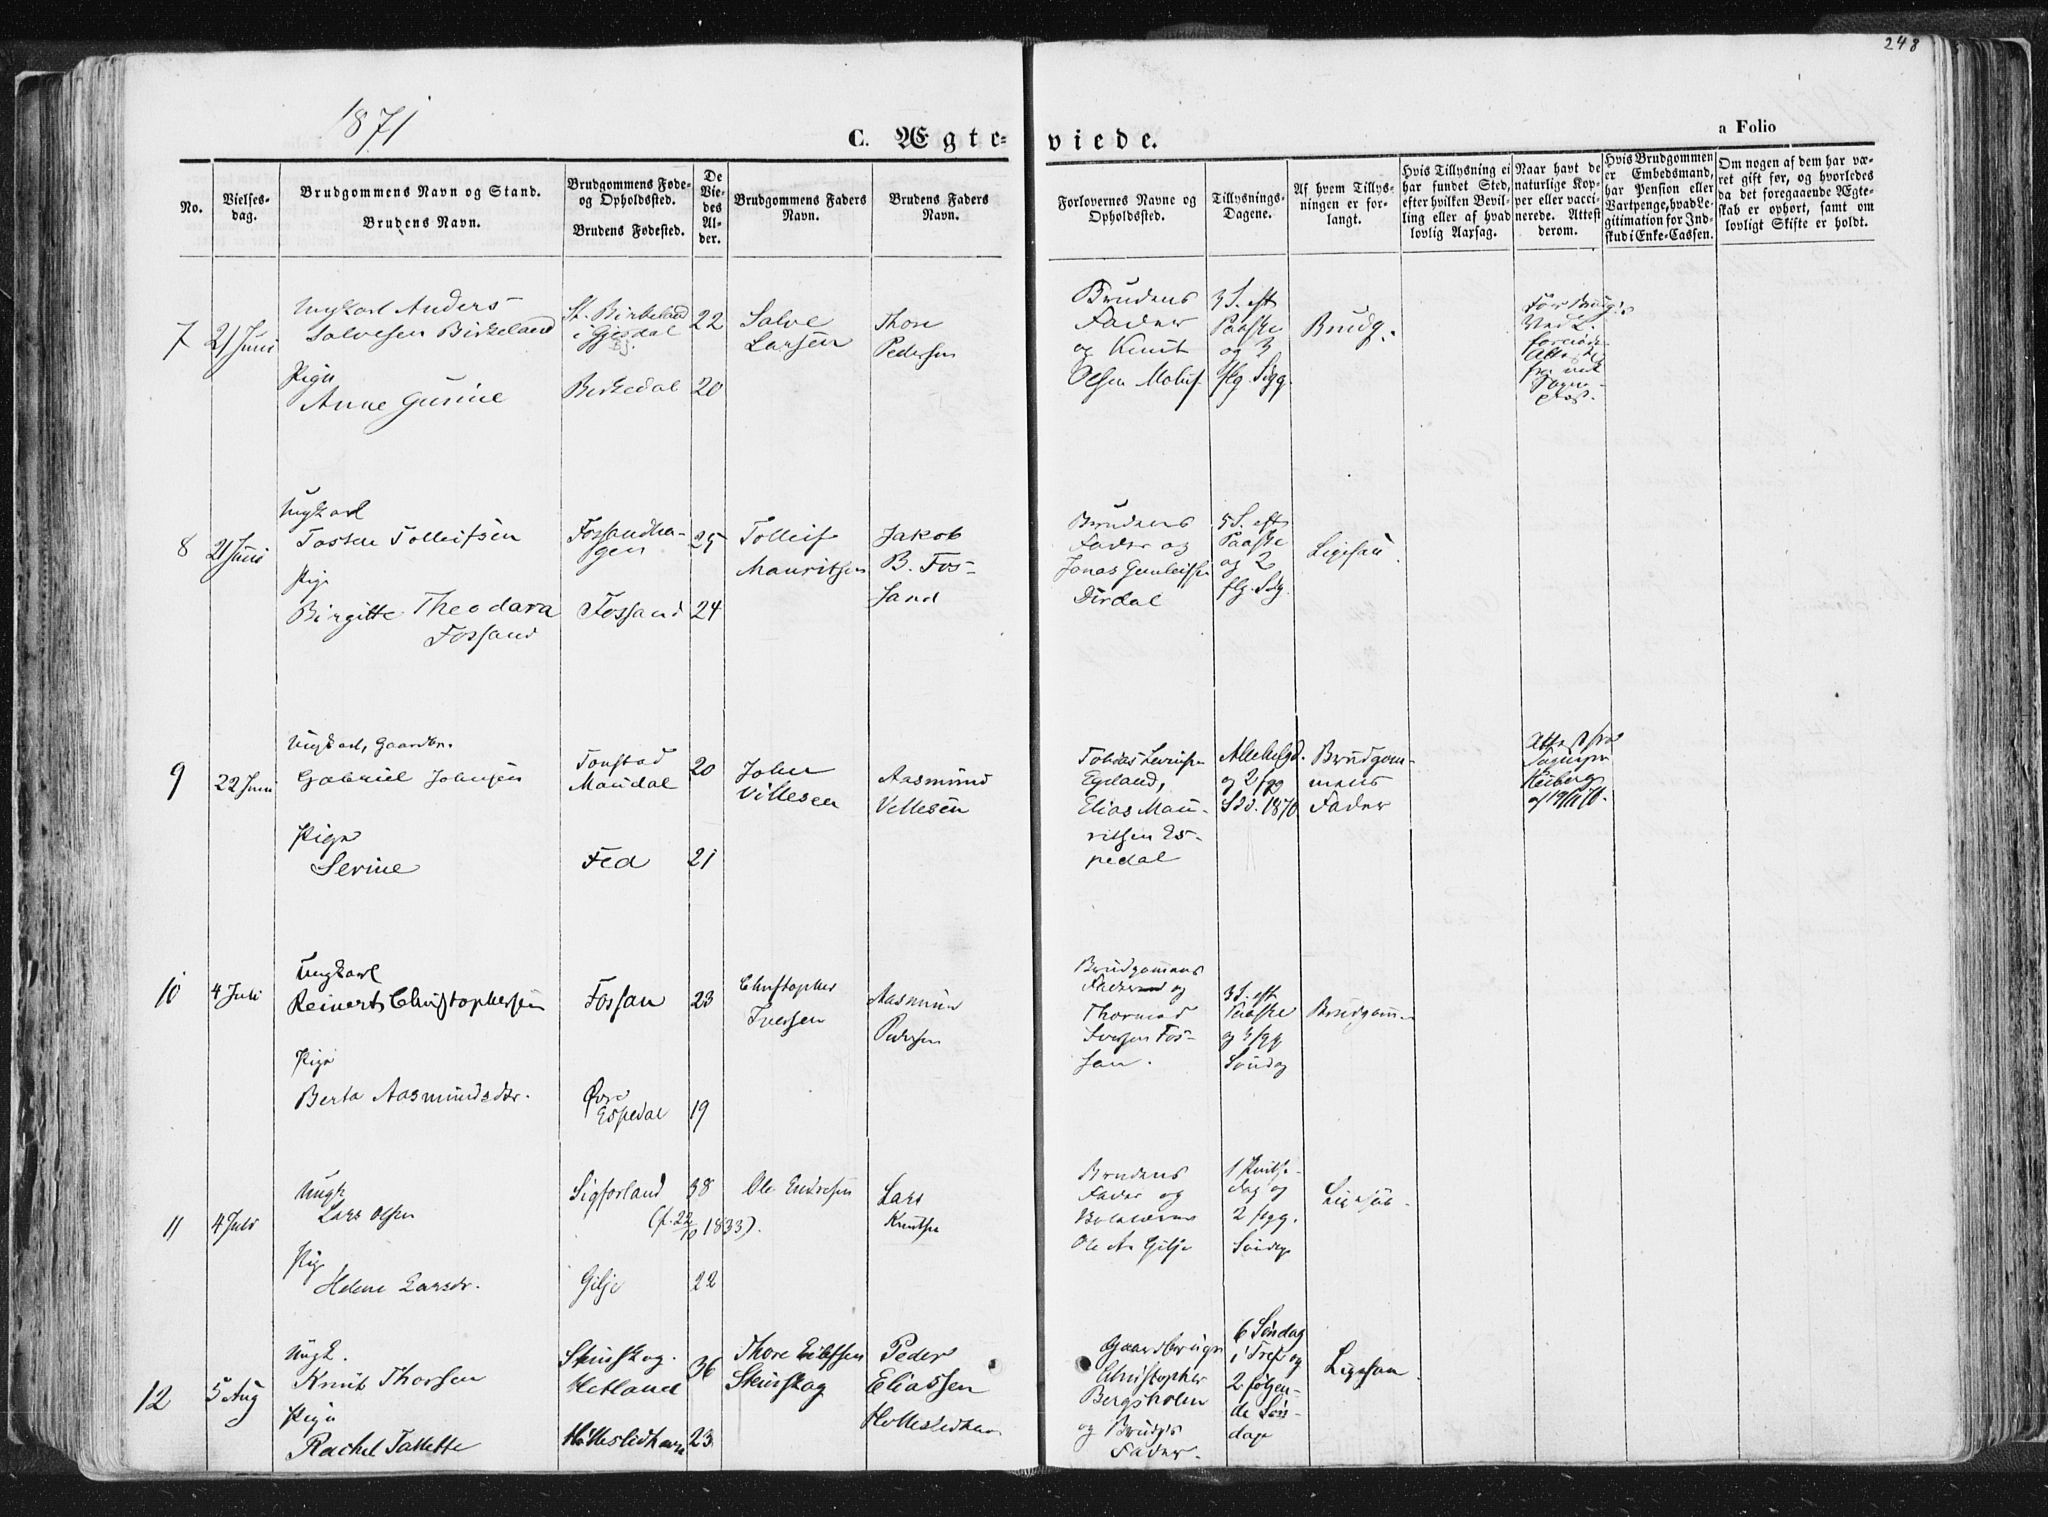 248
1871
C. Ægteviede.
a Folio
No.
Vielses-
dag.
Brudgommens Navn og Stand.
Brudens Navn.
Brudgommens Føde-
og Opholdssted.
Brudens Fødested.
De
Vie-
des
Al-
der.
Brudgommens Faders
Navn.
Brudens Faders
Navn.
Forlovernes Navne og
Opholdssted.
Tillysnings-
Dagene.
Af hvem Tillys-
ningen er for-
langt.
Hvis Tillysning ei
har fundet Sted,
efter hvilken Bevil-
ling eller af hvad
lovlig Aarsag.
Naar havt de
naturlige Kop-
per eller vacci-
nerede. Attest
derom.
Hvis Brudgommen
er Embedsmand,
har Pension eller
Vartpenge, hvad Le-
gitimation for Ind-
skud i Enke-Cassen.
Om nogen af dem har væ-
ret gift før, og hvorledes
da det foregaaende Ægte-
skab er ophørt, samt om
lovligt Skifte er holdt.
7
21 Juni
Ungkarl Anders
Salvesen Birkeland
Pige
Anne Gurine
St. Birkeland
i Gjesdal
Birkedal
22
20
Salve
Larsen
Thore
Pedersen
Brudens
Fader
og Knut
Olsen
3 S. eft
Paaske
og 3
flg. Sdg.
Brudg.
8
21 Juni
Ungkarl
Tosten Tolleifsen
Pige
Birgitte Theodara
Fossand
Fossandha-
gen
Fossand
25
24
Tolleif
Mauritsen
Jakob
B. Fos-
sand
Brudens
Fader og
Jonas Gunleifsen
Dirdal
5 S. eft
Paaske
og 2
flg. Sdg.
Ligesaa.
9
22 Juni
Ungkarl, Gaardbr.
Gabriel Johnsen
Pige
Serine
Tonstad
Mandal
Fed
20
21
John
Villesen
Aasmund
Vellesen
Eyeland,
Elias Mau-
ritsen Es-
pedal
Allehelgd.
og 2 fgg
Sdd. 1870
Brudgom-
mens
Fader
Attest fra
Sognepr
Heiberg
af 19/11 70.
10
4 Juli
Ungkarl
Reinert Christophersen
Pige
Berta Aasmundsdtr.
Fossan
Øvre
Espedal
23
19
Christopher
Iversen
Aasmund
Pedersen
Brudgommens
Fader og
Thormod
Iversen Fos-
san.
3 S. eft
Paaske
og 4 fgg
Søndag
Brudgommen
11
4 Juli
Ungk
Lars Olsen
Pige
Helene Larsdr.
Sigforland
(f. 22/10 1833).
Gilje
38
22
Ole Endresen
Lars
Knutsen
Brudens
Fader og
Ole As Gilje
1 Pintse-
dag og
2 fgg.
Søndage
12
5 Aug
Ungk.
Knut Thorsen
Pige
Rachel Tallette
Stenskog.
Hetland
Hølleslidhavn
36
23
Thore Eilefsen
Stenskog
Peder
Eliassen
Hølleslidhavn
Gaardbrugr
Christopher
Bergsholm
og Brudgs
Fader.
6 Søndag
i Tref og
2 følgen-
de Søn-
dage
Ligesaa.